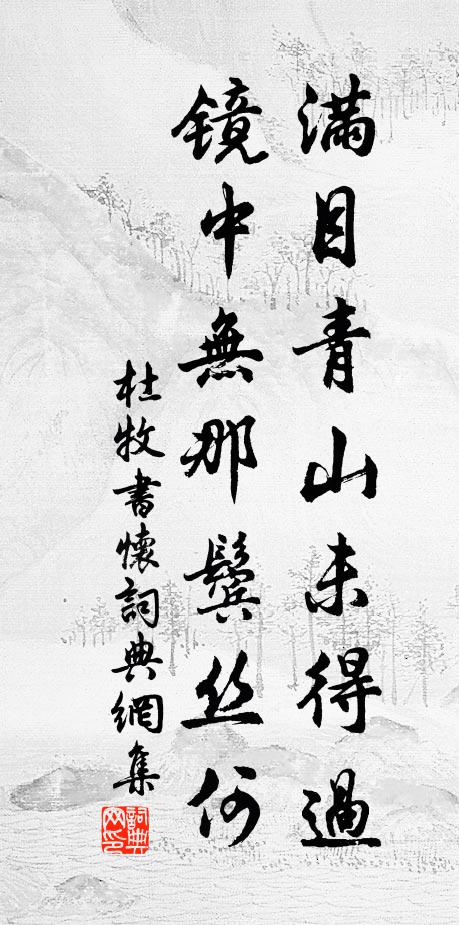 滿目青山未得過
鏡中無那鬢丝何
杜牧書懷詞典網集
詞典網印